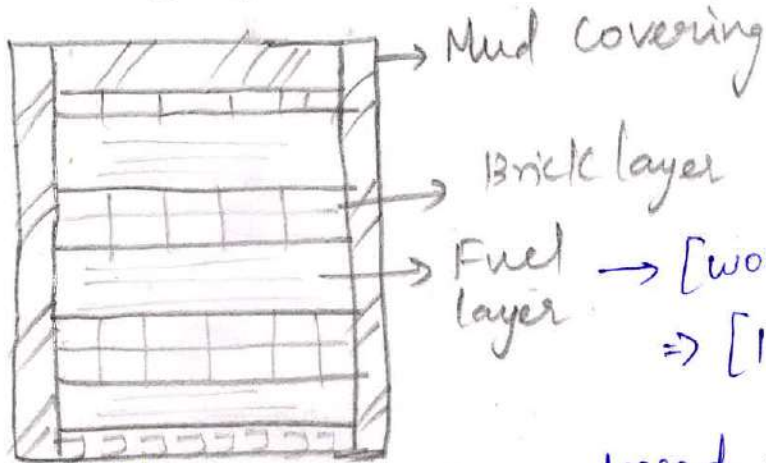 Mud Covering
Brick layer
Fuel → [wo
layer
⇒ [1